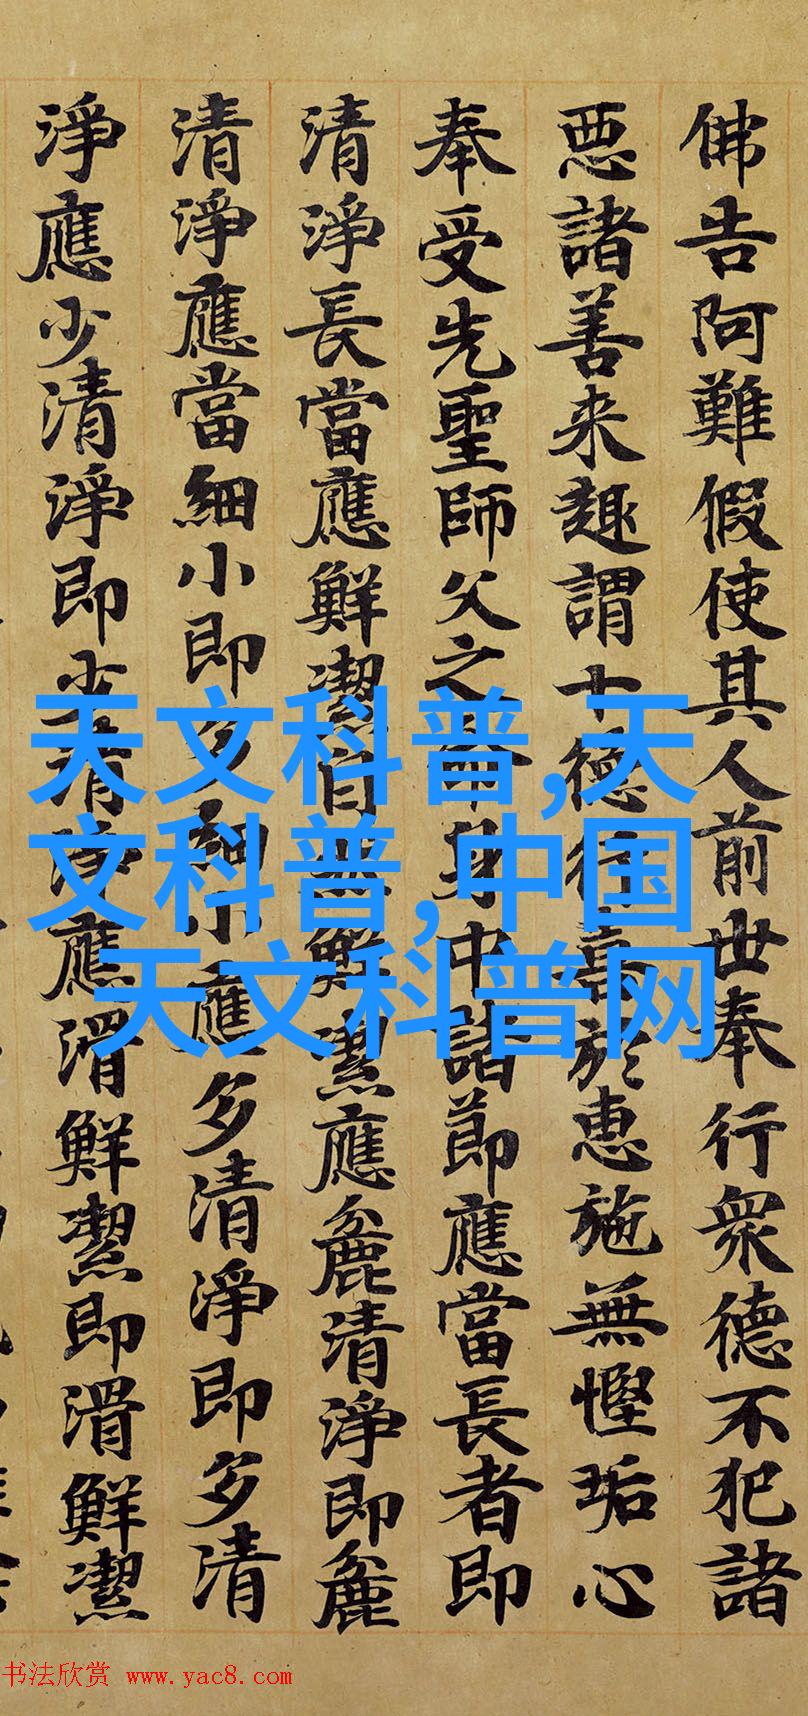 佛告阿難假使其人前世奉行眾德不犯諸
惡諸善来趣謂十德行喜於惠施無慳垢心
奉受先聖師父之命身中諸節應當長者即
清淨長當應鮮潔自然鮮潔應麁清淨即麁
清淨應當細小即多細小應多清淨即多清
淨應少清淨即少清淨應滑鮮潔即滑鮮潔
天文科普,天
文科普,中国
天文科普网
书法欣赏 www.yac8.com